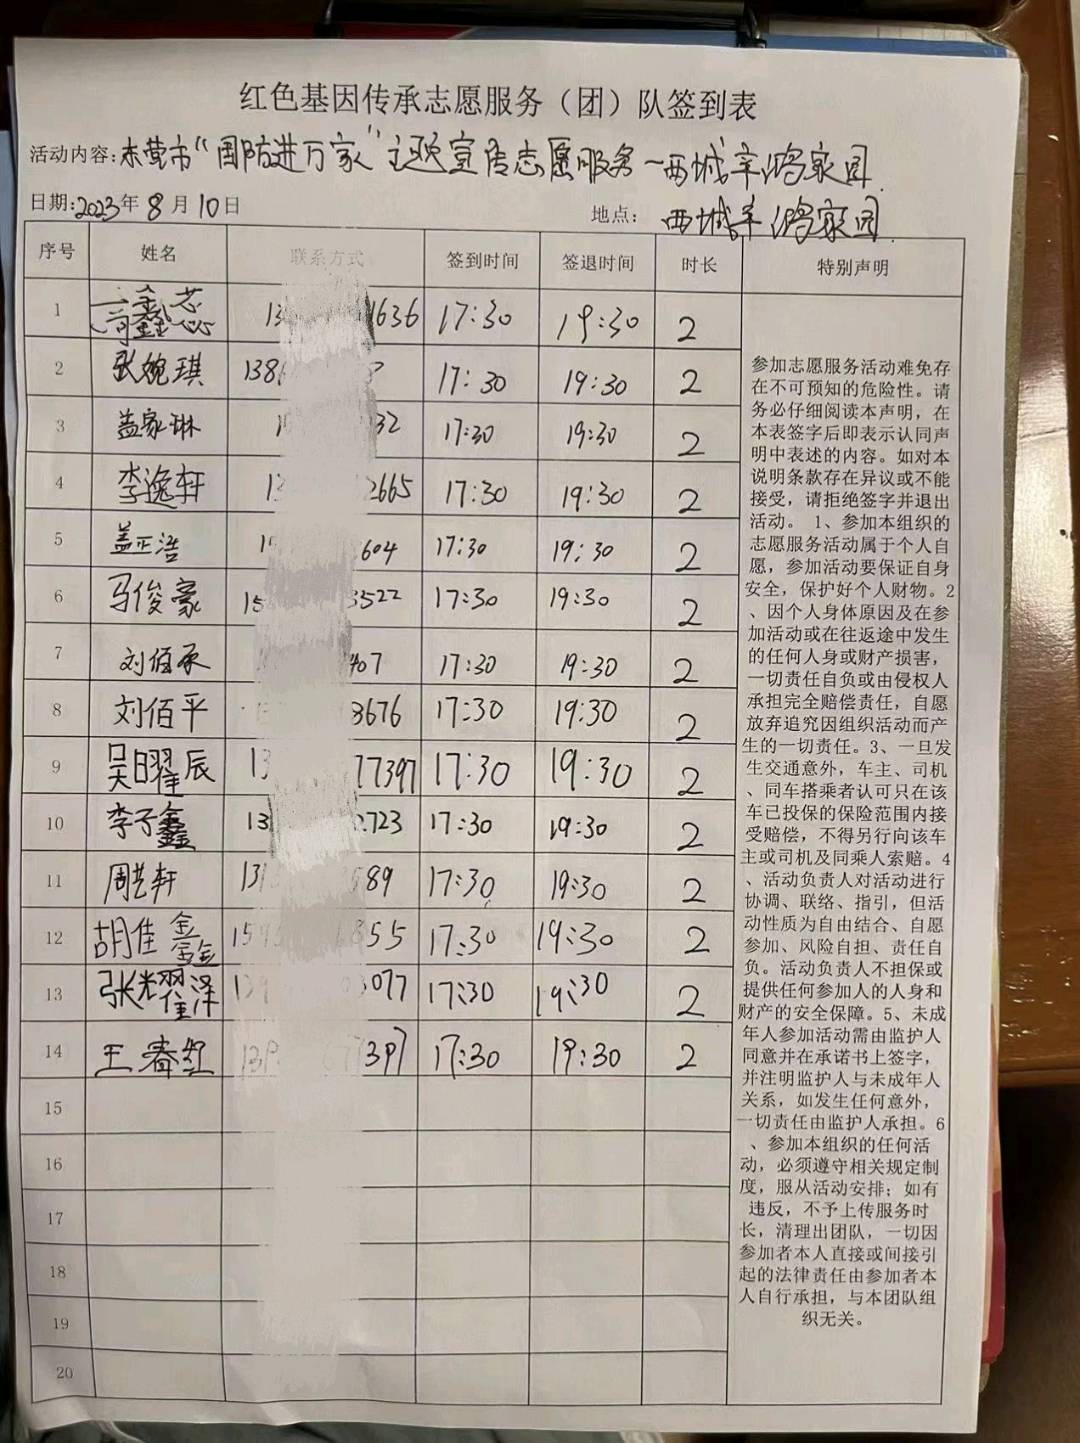 红色基因传承志愿服务（团）队签到表
活动内容:东营市“国防进万家”主题宣传志愿服务—西城辛鸿家园
日期:2023年8月10日 地点： 西城辛鸿家园
序号 姓名 联系方式 签到时间 签退时间 时长 特别声明
1 13 1636 17:30 19:30 2
2 张婉琪 138 17:30 19:30 2
3 盖家琳 1 32 17:30 19:30 2
4 李逸轩 13 2665 17:30 19:30 2
5 盖正浩 1 604 17:30 19:30 2
6 马俊豪 15 3522 17:30 19:30 2
7 刘佰承 407 17:30 19:30 2
8 刘佰平 3676 17:30 19:30 2
9 吴曜辰 13 77397 17:30 19:30 2
10 李子鑫 13 2723 17:30 19:30 2
11 周艺轩 131 589 17:30 19:30 2
12 胡佳鑫 159 855 17:30 19:30 2
13 张耀泽 139 3077 17:30 19:30 2
14 王春红 139 7397 17:30 19:30 2
15
16
17
18
19
20
参加志愿服务活动难免存
在不可预知的危险性。请
务必仔细阅读本声明，在
本表签字后即表示认同声
明中表述的内容。如对本
说明条款存在异议或不能
接受，请拒绝签字并退出
活动。 1、参加本组织的
志愿服务活动属于个人自
愿，参加活动要保证自身
安全，保护好个人财物。2
、因个人身体原因及在参
加活动或在往返途中发生
的任何人身或财产损害，
一切责任自负或由侵权人
承担完全赔偿责任，自愿
放弃追究因组织活动而产
生的一切责任。3、一旦发
生交通意外，车主、司机
、同车搭乘者认可只在该
车已投保的保险范围内接
受赔偿，不得另行向该车
主或司机及同乘人索赔。4
、活动负责人对活动进行
协调、联络、指引，但活
动性质为自由结合、自愿
参加、风险自担、责任自
负。活动负责人不担保或
提供任何参加人的人身和
财产的安全保障。5、未成
年人参加活动需由监护人
同意并在承诺书上签字，
并注明监护人与未成年人
关系，如发生任何意外，
一切责任由监护人承担。6
、参加本组织的任何活
动，必须遵守相关规定制
度，服从活动安排；如有
违反，不予上传服务时
长，清理出团队，一切因
参加者本人直接或间接引
起的法律责任由参加者本
人自行承担，与本团队组
织无关。